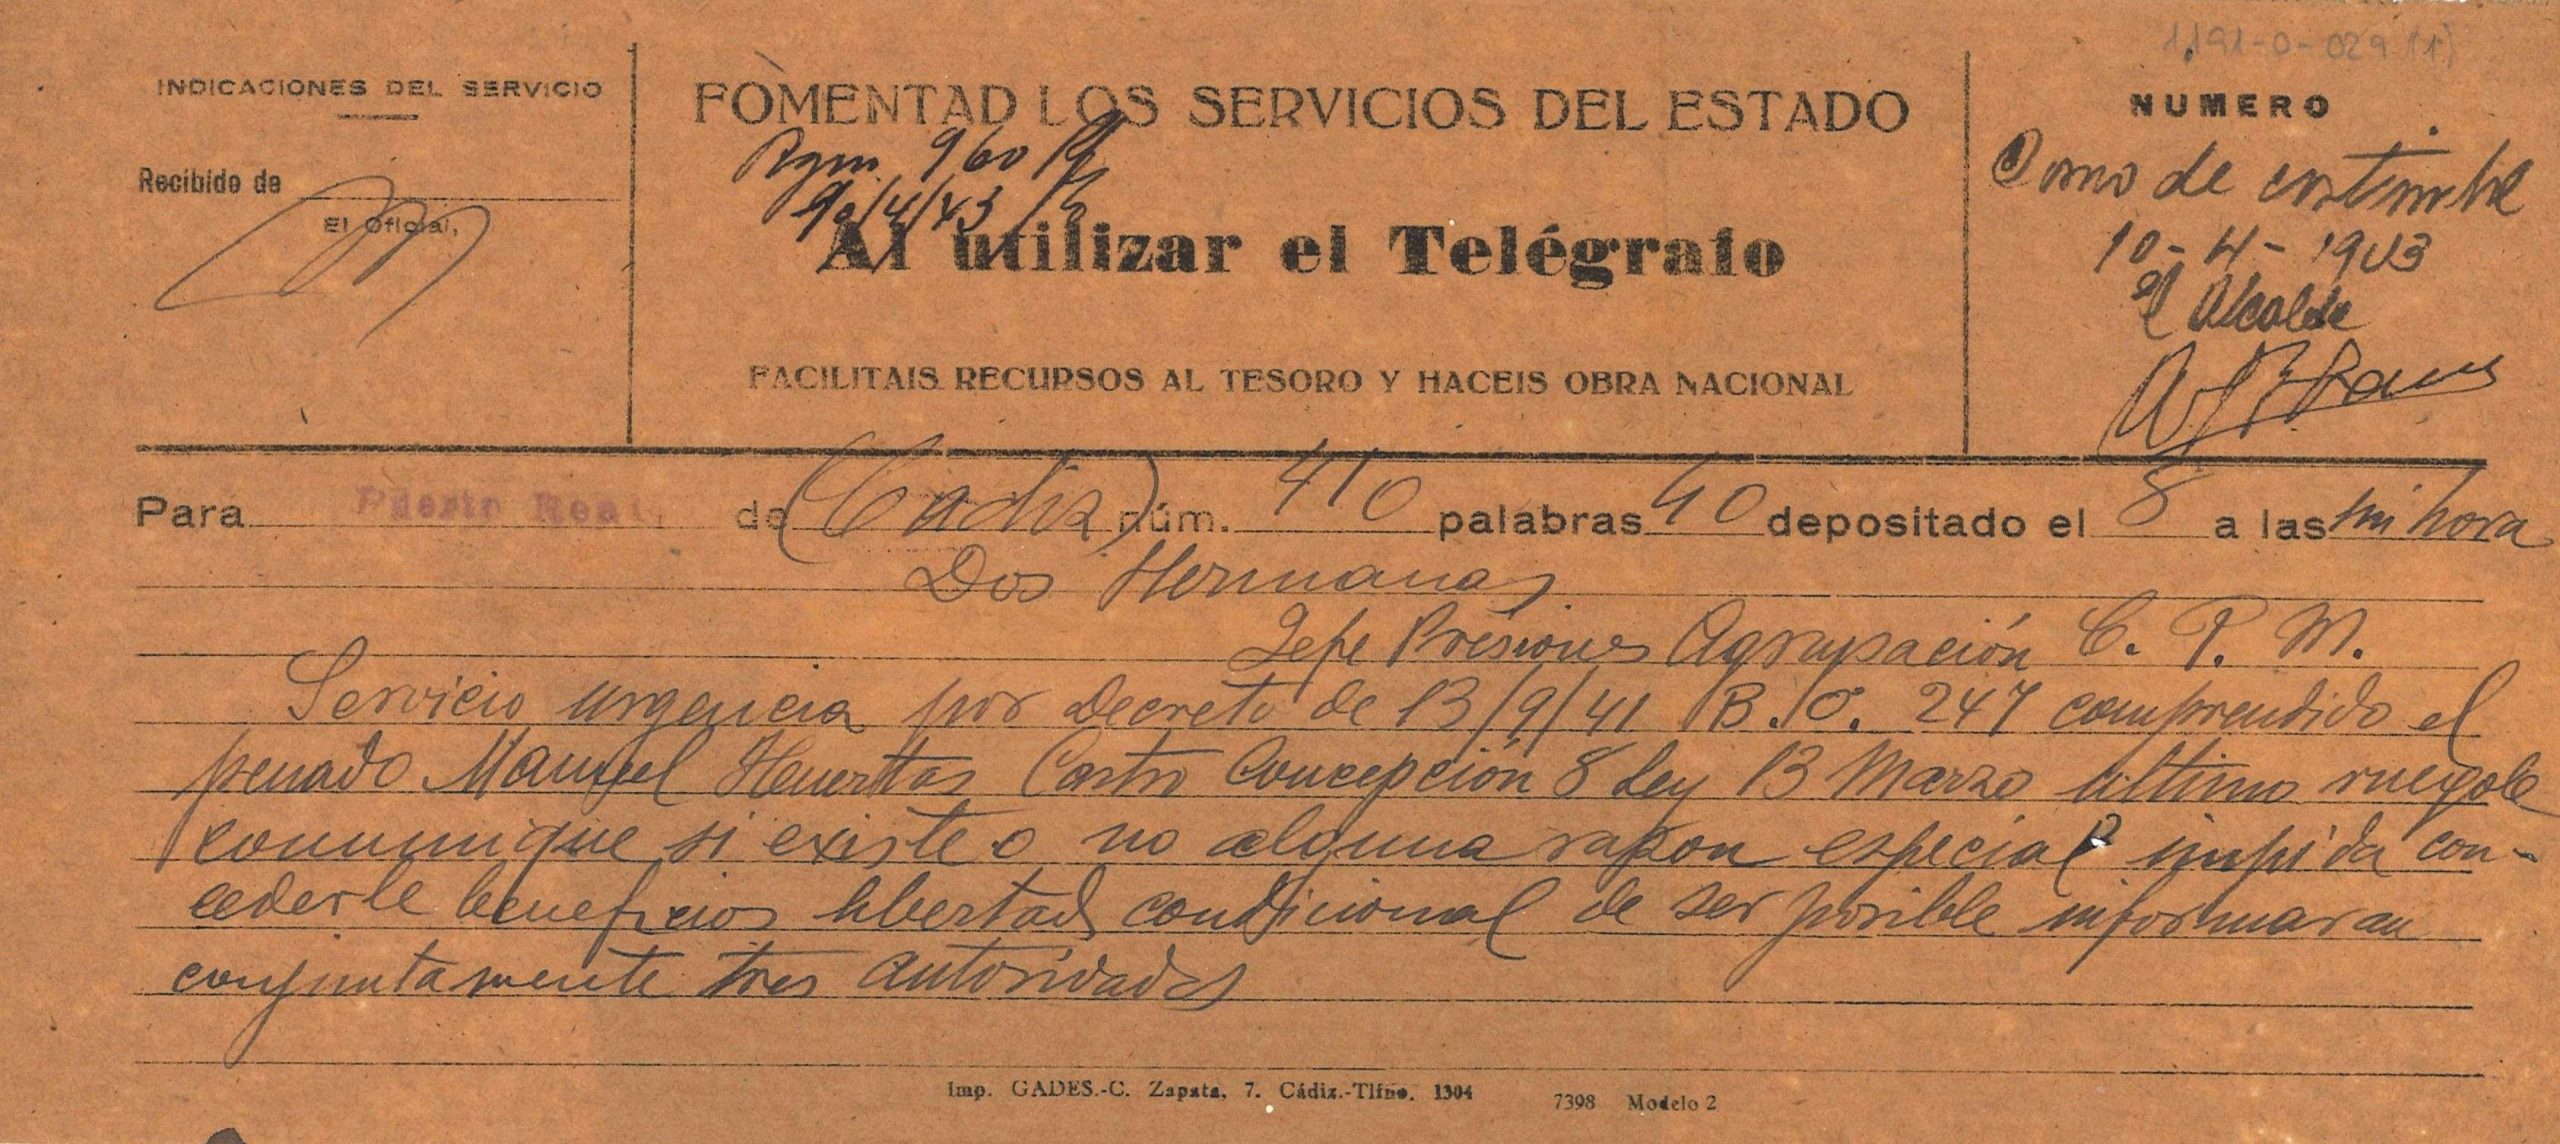 1191-0-029 (1)
INDICACIONES DEL SERVICIO
Recibido de
El Oficial,
FOMENTAD LOS SERVICIOS DEL ESTADO
960
9/4/43
Al utilizar el Telégrafo
FACILITAIS RECURSOS AL TESORO Y HACEIS OBRA NACIONAL
NUMERO
Como de costumbre
10-4-1943
el Alcalde
Para Puerto Real. de (Cadiz) núm. 410 palabras 40 depositado el 8 a las sin hora
Dos Hermanas
Jefe Presiones Agrupación C. P. M.
Servicio urgencia por Decreto de 13/9/41 B.O. 247 comprendido el
penado Manuel Huerttas Castro Concepción 8 Ley 13 Marzo ultimo ruegole
comunique si existe o no alguna razon especial impida con-
cederle beneficios libertad condicional de ser posible informaran
conjuntamente tres autoridades
Imp. GADES.-C. Zapata, 7. Cádiz.-Tlfno. 1304
7398 Modelo 2